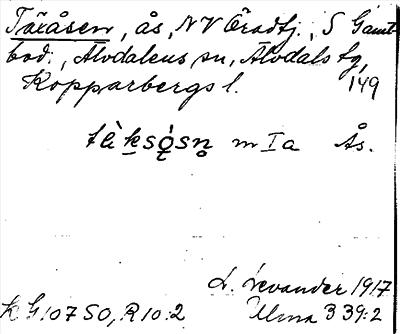 Täxåsen, ås, NV Öradtj., S Gamt-
bod., Älvdalens sn, Älvdals tg,
Kopparbergs l. 149
m Ia Ås.
L. Levander 1917
K G:107 SO, R10:2 Ulma 339:2